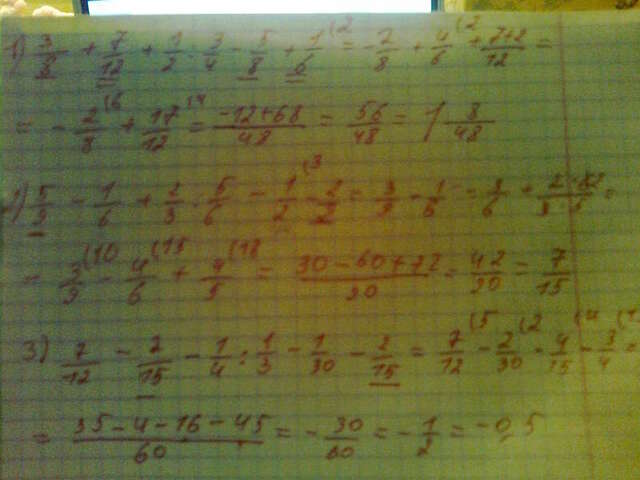 1) 3/8 + 7/12 + 1/2 · 3/4 - 5/8 + 1/6 (2 = -2/8 + 4/6 (2 + 7+2/12 =
= - 2/8 (6 + 17/12 (4 = -12+68/48 = 56/48 = 1 8/48
5/9 - 1/6 + 2/3 · 5/6 - 1/2 (3 = 3/9 - 1/6 =
= 3/9 (10 - 4/6 (15 + 4/5 (18 = 30-60+72/90 = 42/90 = 7/15
3) 7/12 - 2/15 - 1/4 : 1/3 - 1/30 - 2/15 = 7/12 (5 - 2/30 (2 - 4/15 (4 - 3/4 =
= 35-4-16-45/60 = - 30/60 = - 1/2 = -0,5